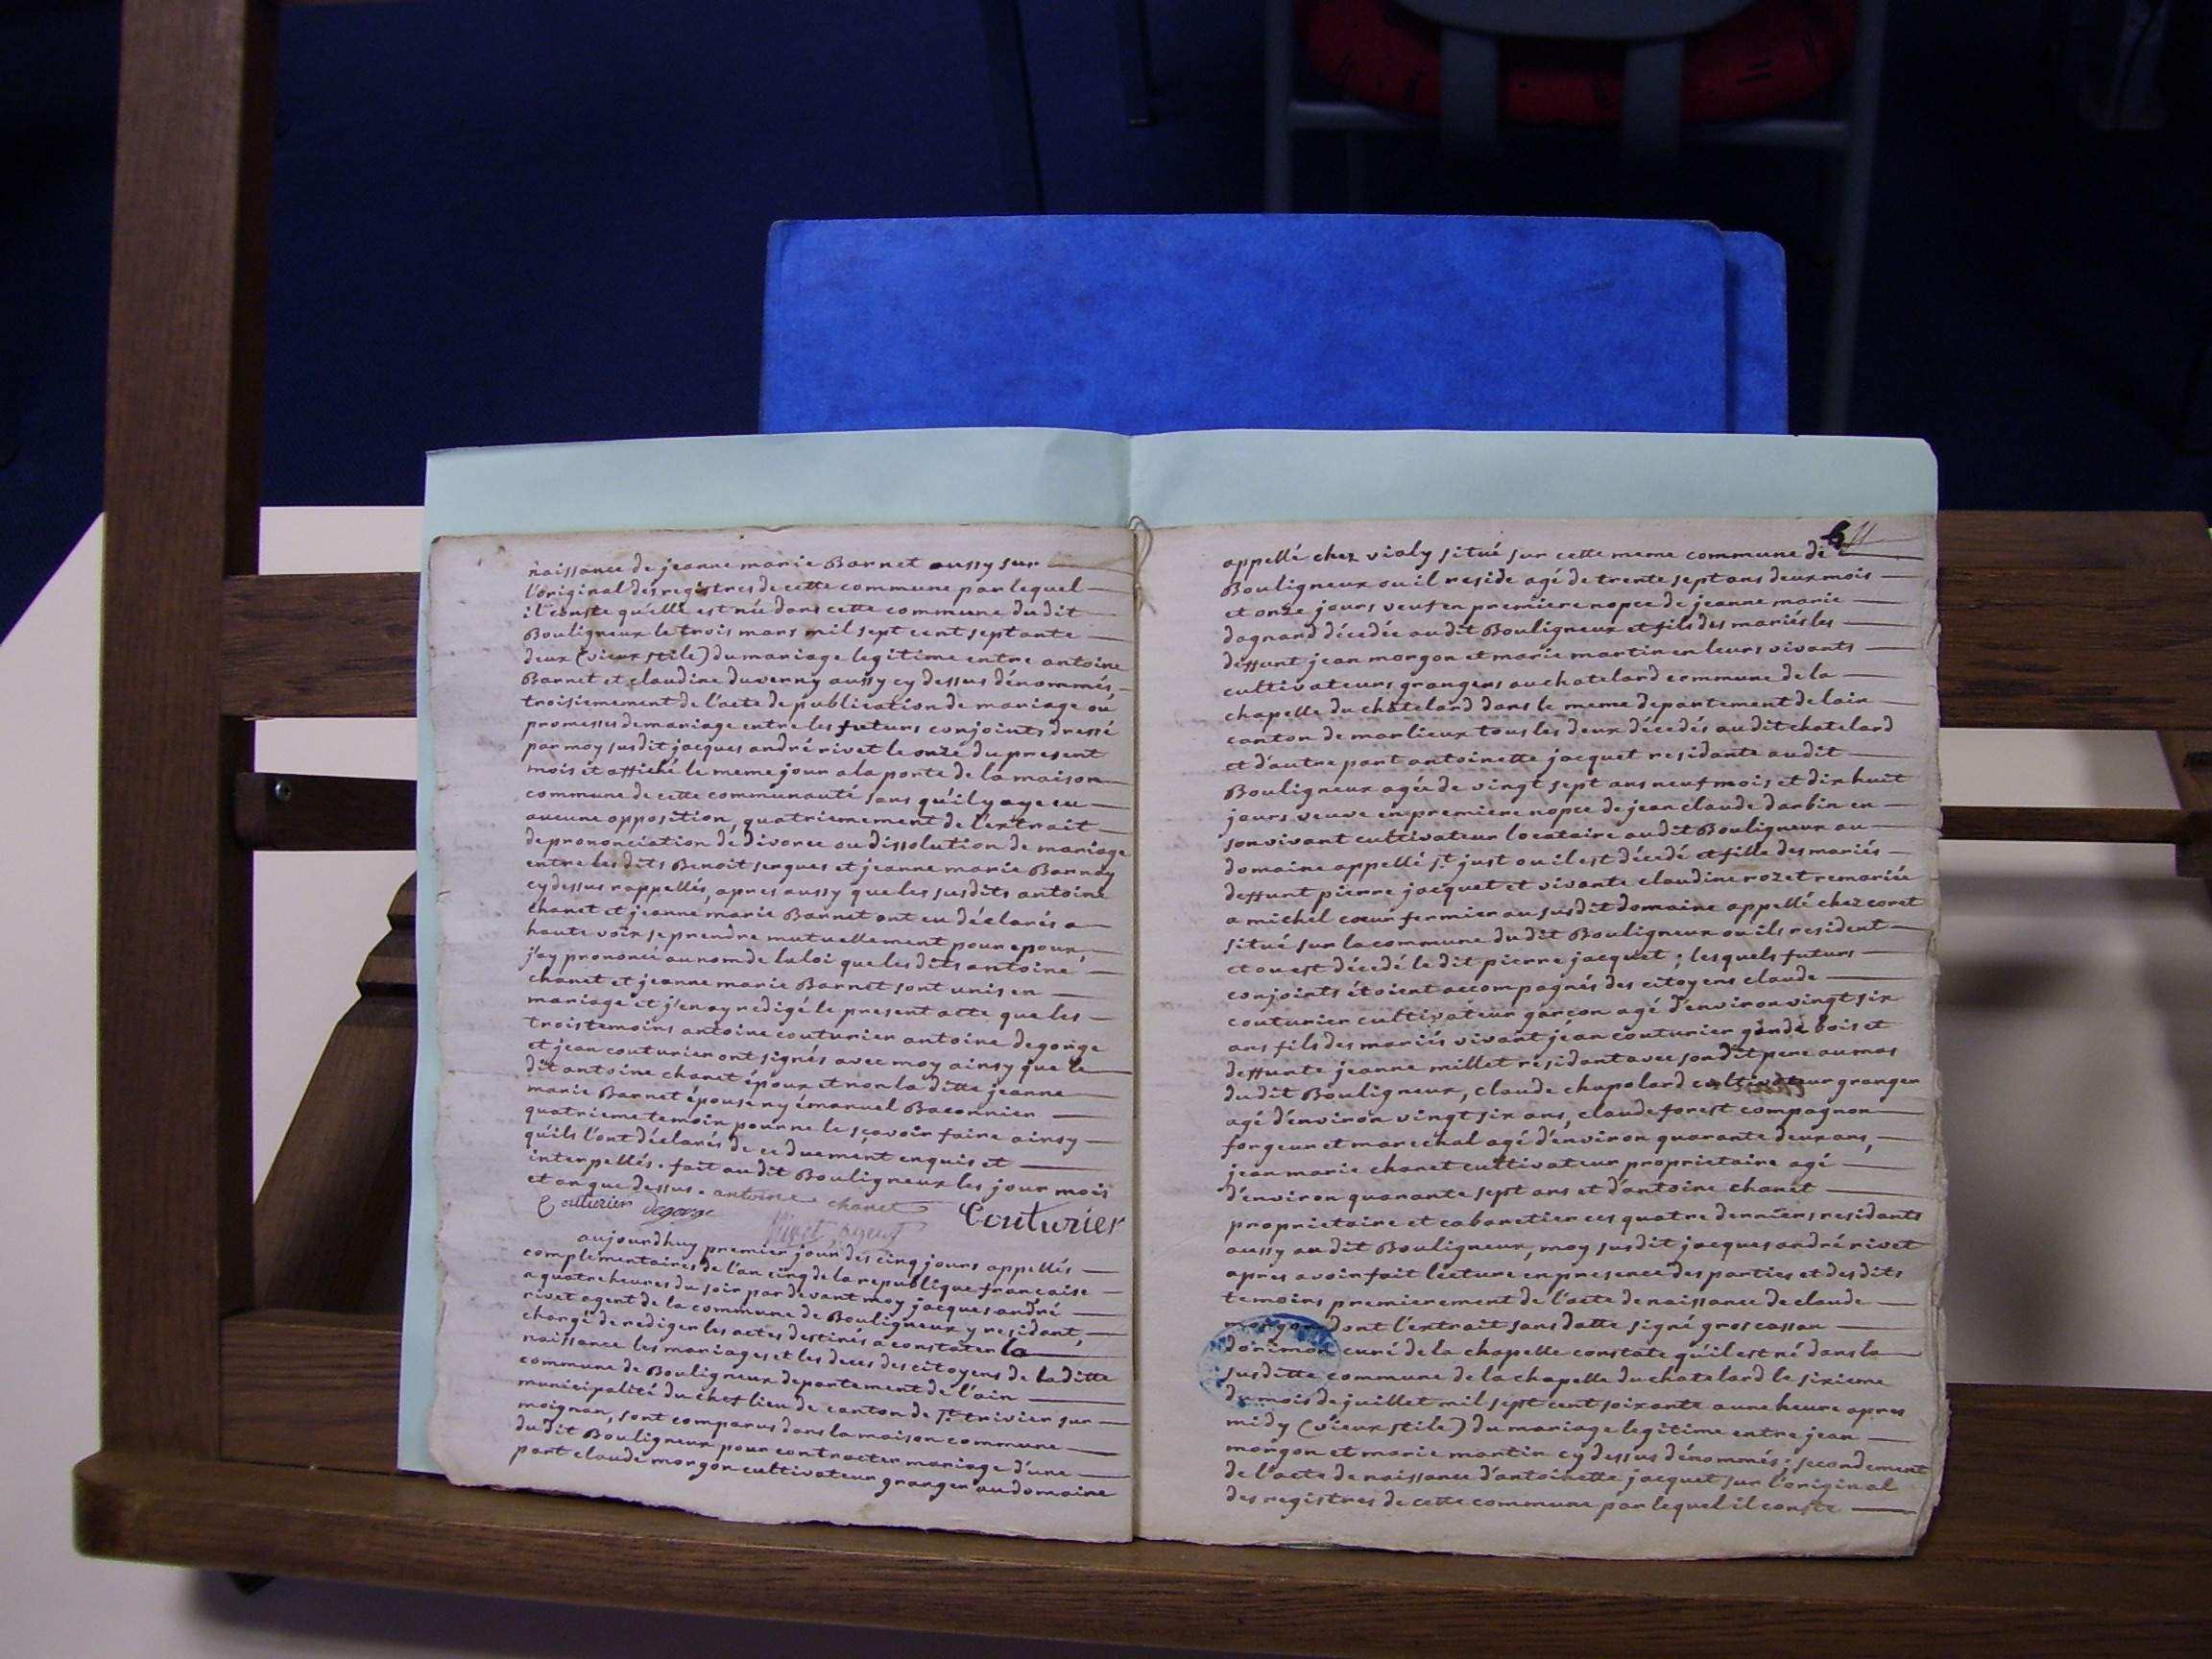 naissance de jeanne marie Barnet aussy sur
l'original des registres de cette commune par lequel
il conste qu'elle est née dans cette commune dudit
Bouligneux le trois mars mil sept cent septante
deux (vieux stile) du mariage legitime entre antoine
Barnet et claudine duverny aussy cy dessus dénommés,
troisiemement de l'acte de publication de mariage ou
promesses de mariage entre les futurs conjoints dressé
par moy susdit jacques andré rivet le onze du present
mois et affiché le meme jour a la porte de la maison
commune de cette communauté sans qu'il y aye eu
aucune opposition, quatriemement de l'extrait
de prononciation de divorce ou dissolution de mariage
entre les dits Benoit sergues et jeanne marie Barnay
cy dessus rappellés, apres aussy que les susdits antoine
chanet et jeanne marie Barnet ont eu déclarés a
haute voix se prendre mutuellement pour epoux,
j'ay prononcé au nom de la loi que les dits antoine
chanet et jeanne marie Barnet sont unis en
mariage et j'en ay redigé le present acte que les
trois temoins antoine couturier antoine degorge
et jean couturier ont signés avec moy ainsy que le
dit antoine chanet époux et non la ditte jeanne
marie Barnet épouse ny émanuel Baconnier
quatrieme temoin pour ne le sçavoir faire ainsy
qu'ils l'ont déclarés de ce duement enquis et
interpellés. fait au dit Bouligneux les jour mois
et an que dessus. antoine chanet
Couturier degorge Couturier
Rivet, agent
aujourdhuy premier jour des cinq jours appellés
complementaires de l'an cinq de la republique francaise
a quatre heures du soir pardevant moy jacques andré
rivet agent de la commune de Bouligneux y residant,
chargé de rediger les actes destinés a constater la
naissance les mariages et les deces des citoyens de laditte
commune de Bouligneux departement de l'ain
municipalité du chef lieu de canton de st. trivier sur
moignan, sont comparus dans la maison commune
du dit Bouligneux pour contracter mariage d'une
part claude morgon cultivateur granger au domaine
appellé chez vialy situé sur cette meme commune de
Bouligneux ou il reside agé de trente sept ans deux mois
et onze jours veuf en premiere nopce de jeanne marie
dagnard décedée au dit Bouligneux et fils des mariés les
deffunt jean morgon et marie martin en leurs vivants
cultivateurs grangers au chatelard commune de la
chapelle du chatelard dans le meme departement de l'ain
canton de marlieux tous les deux décedés au dit chatelard
et d'autre part antoinette jacquet residante au dit
Bouligneux agée de vingt sept ans neuf mois et dix huit
jours veuve en premiere nopce de jean claude darbin en
son vivant cultivateur locataire au dit Bouligneux au
domaine appellé st. just ou il est décedé et fille des mariés
deffunt pierre jacquet et vivante claudine rozet remariée
a michel cœur fermier au susdit domaine appellé chez coret
situé sur la commune du dit Bouligneux ou ils resident
et ou est décedé le dit pierre jacquet ; lesquels futurs
conjoints étoient accompagnés des citoyens claude
couturier cultivateur garçon agé d'environ vingt six
ans fils des mariés vivant jean couturier garde bois et
deffunte jeanne millet residant avec son dit pere au mas
du dit Bouligneux, claude chapolard cultivateur granger
agé d'environ vingt six ans, claude forest compagnon
forgeur et marechal agé d'environ quarante deux ans,
jean marie chanet cultivateur proprietaire agé
d'environ quarante sept ans et d'antoine chanet
proprietaire et cabaretier ces quatre derniers residants
aussy au dit Bouligneux, moy susdit jacques andré rivet
apres avoir fait lecture en presence des parties et des dits
temoins premierement de l'acte de naissance de claude
morgon dont l'extrait sans datte signé groscassan
dorimon curé de la chapelle constate qu'il est né dans la
susditte commune de la chapelle du chatelard le sixieme
du mois de juillet mil sept cent soixante a une heure apres
midy (vieux stile) du mariage legitime entre jean
morgon et marie martin cy dessus dénommés ; secondement
de l'acte de naissance d'antoinette jacquet sur l'original
des registres de cette commune par lequel il conste